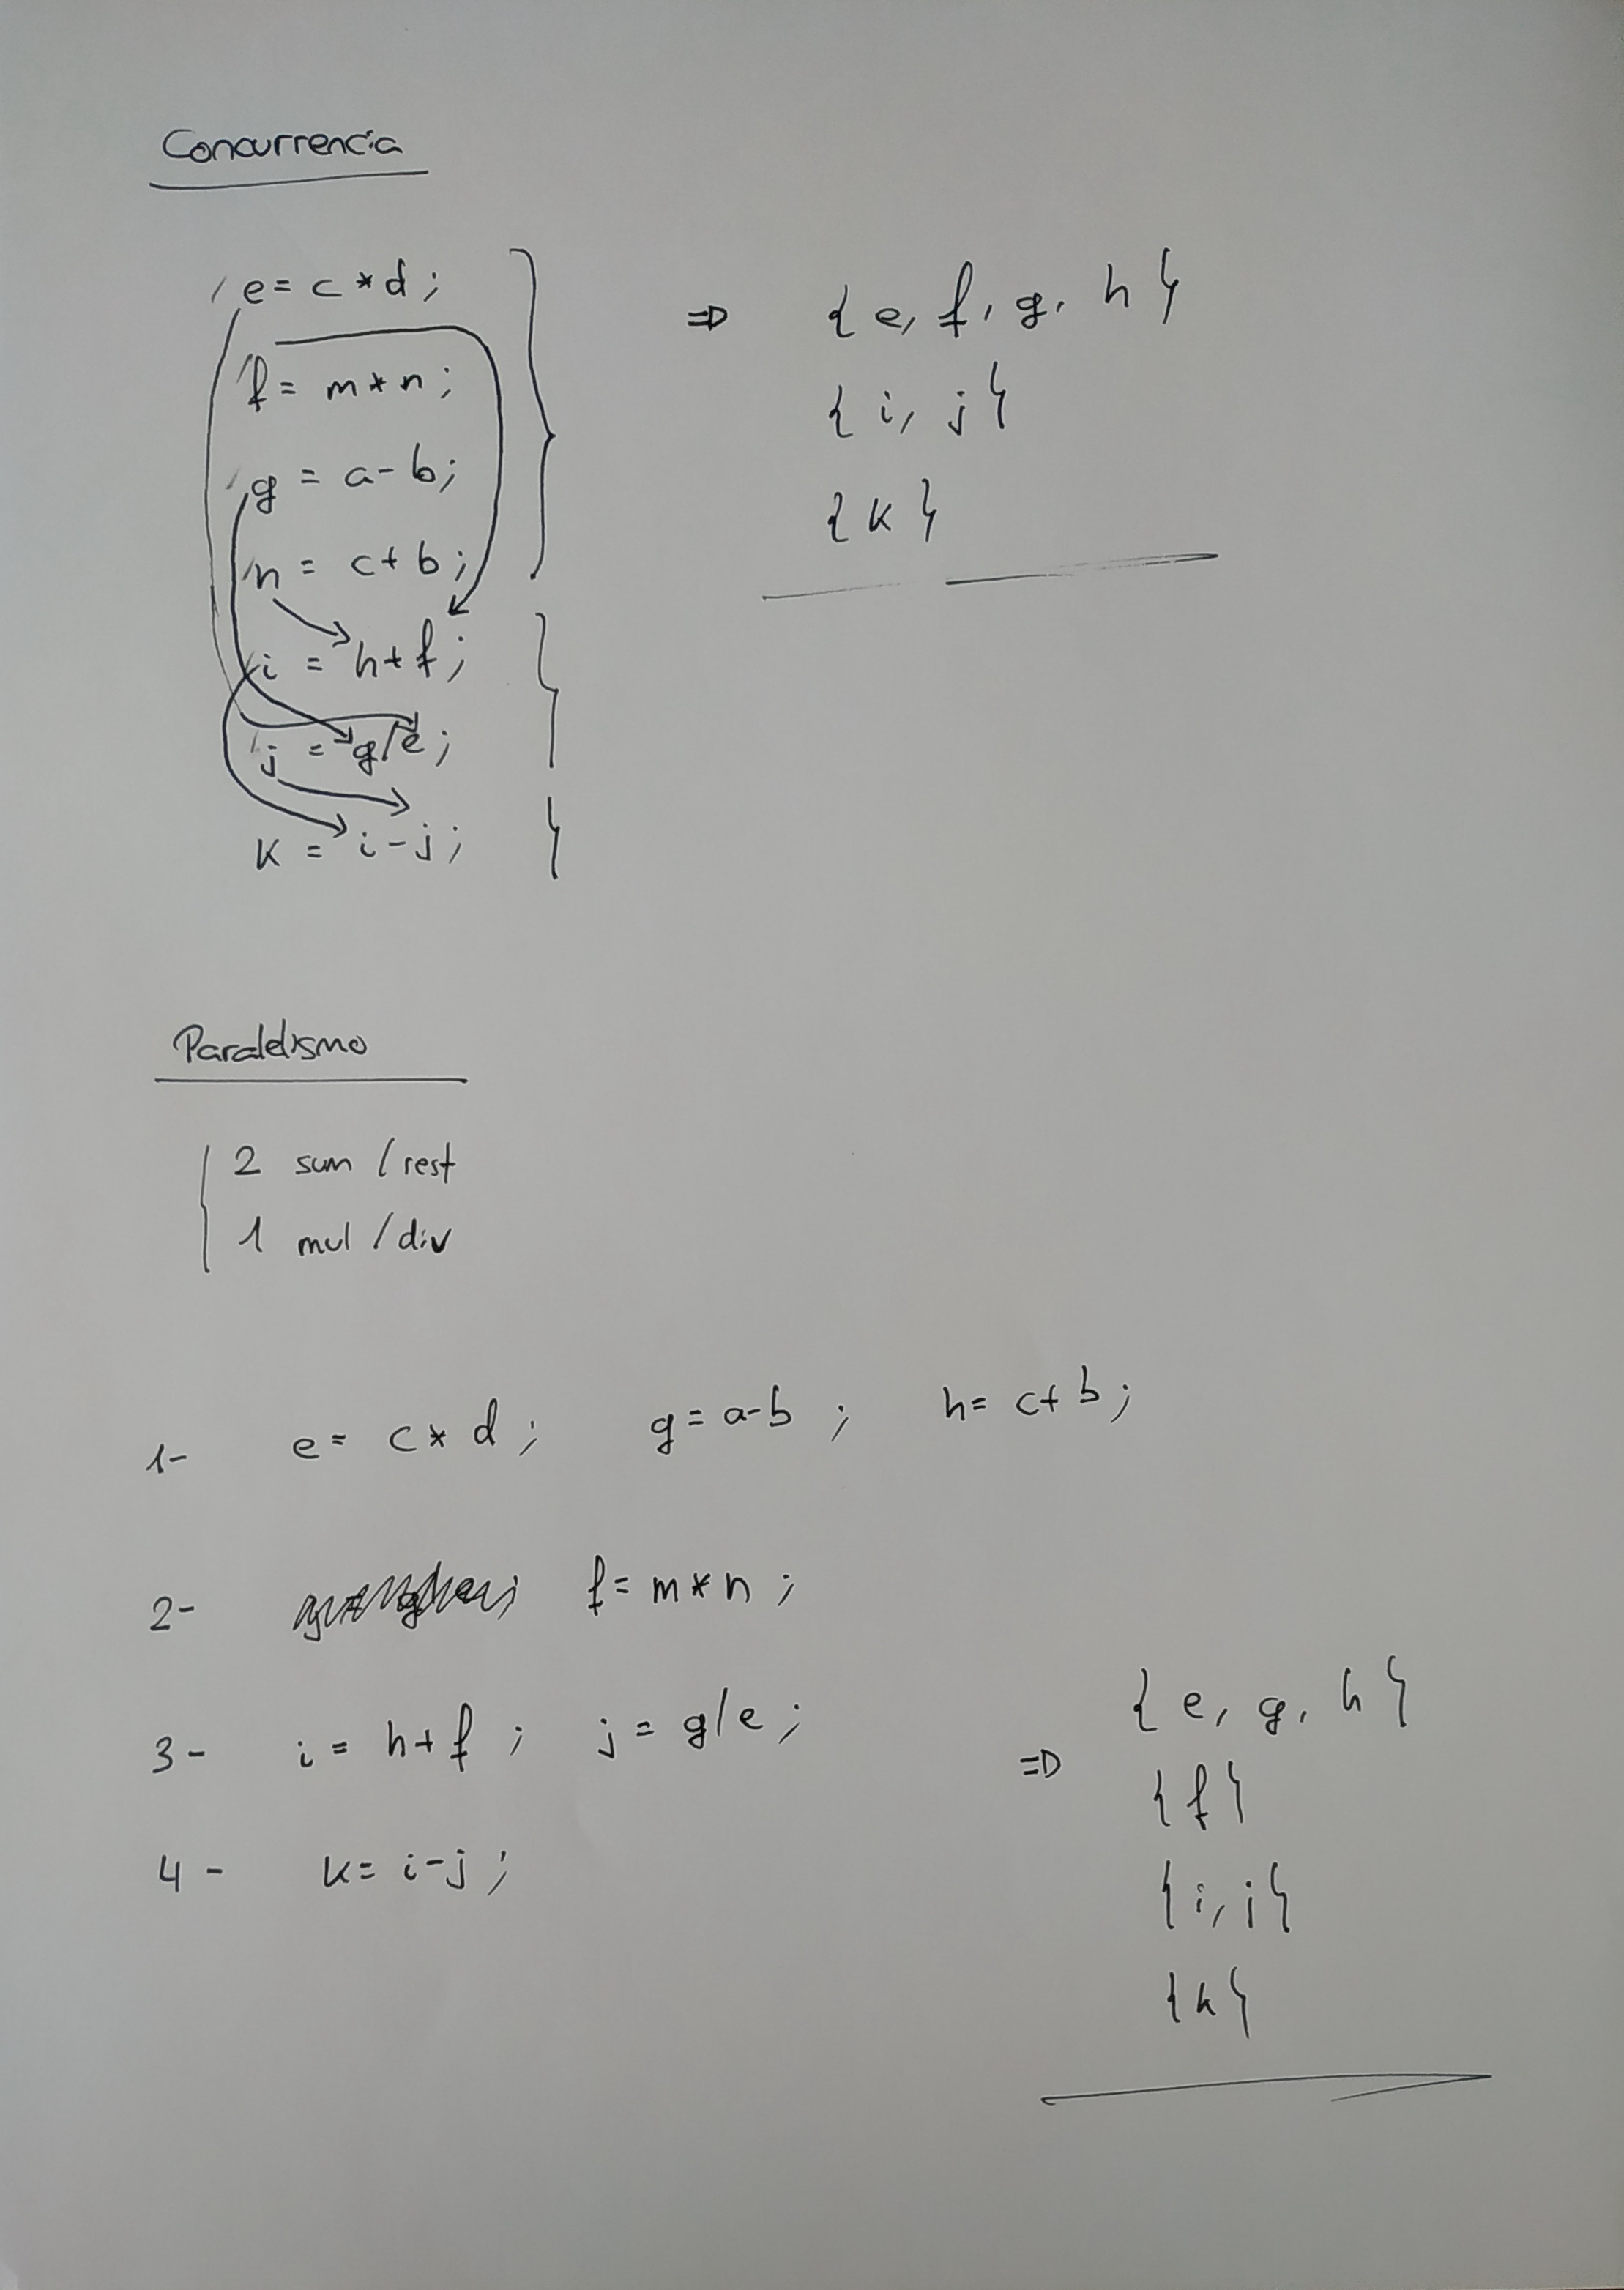 Concurrencia
e = c * d ;
f = m * n ;
g = a - b ;
h = c + b ;
i = h + f ;
j = g / e ;
k = i - j ;
⇒ { e, f, g, h }
{ i, j }
{ k }
Paralelismo
2 sum / rest
1 mul / div
1- e = c * d ; g = a - b ; h = c + b ;
2- f = m * n ;
3- i = h + f ; j = g / e ;
4- k = i - j ;
⇒ { e, g, h }
{ f }
{ i, j }
{ k }